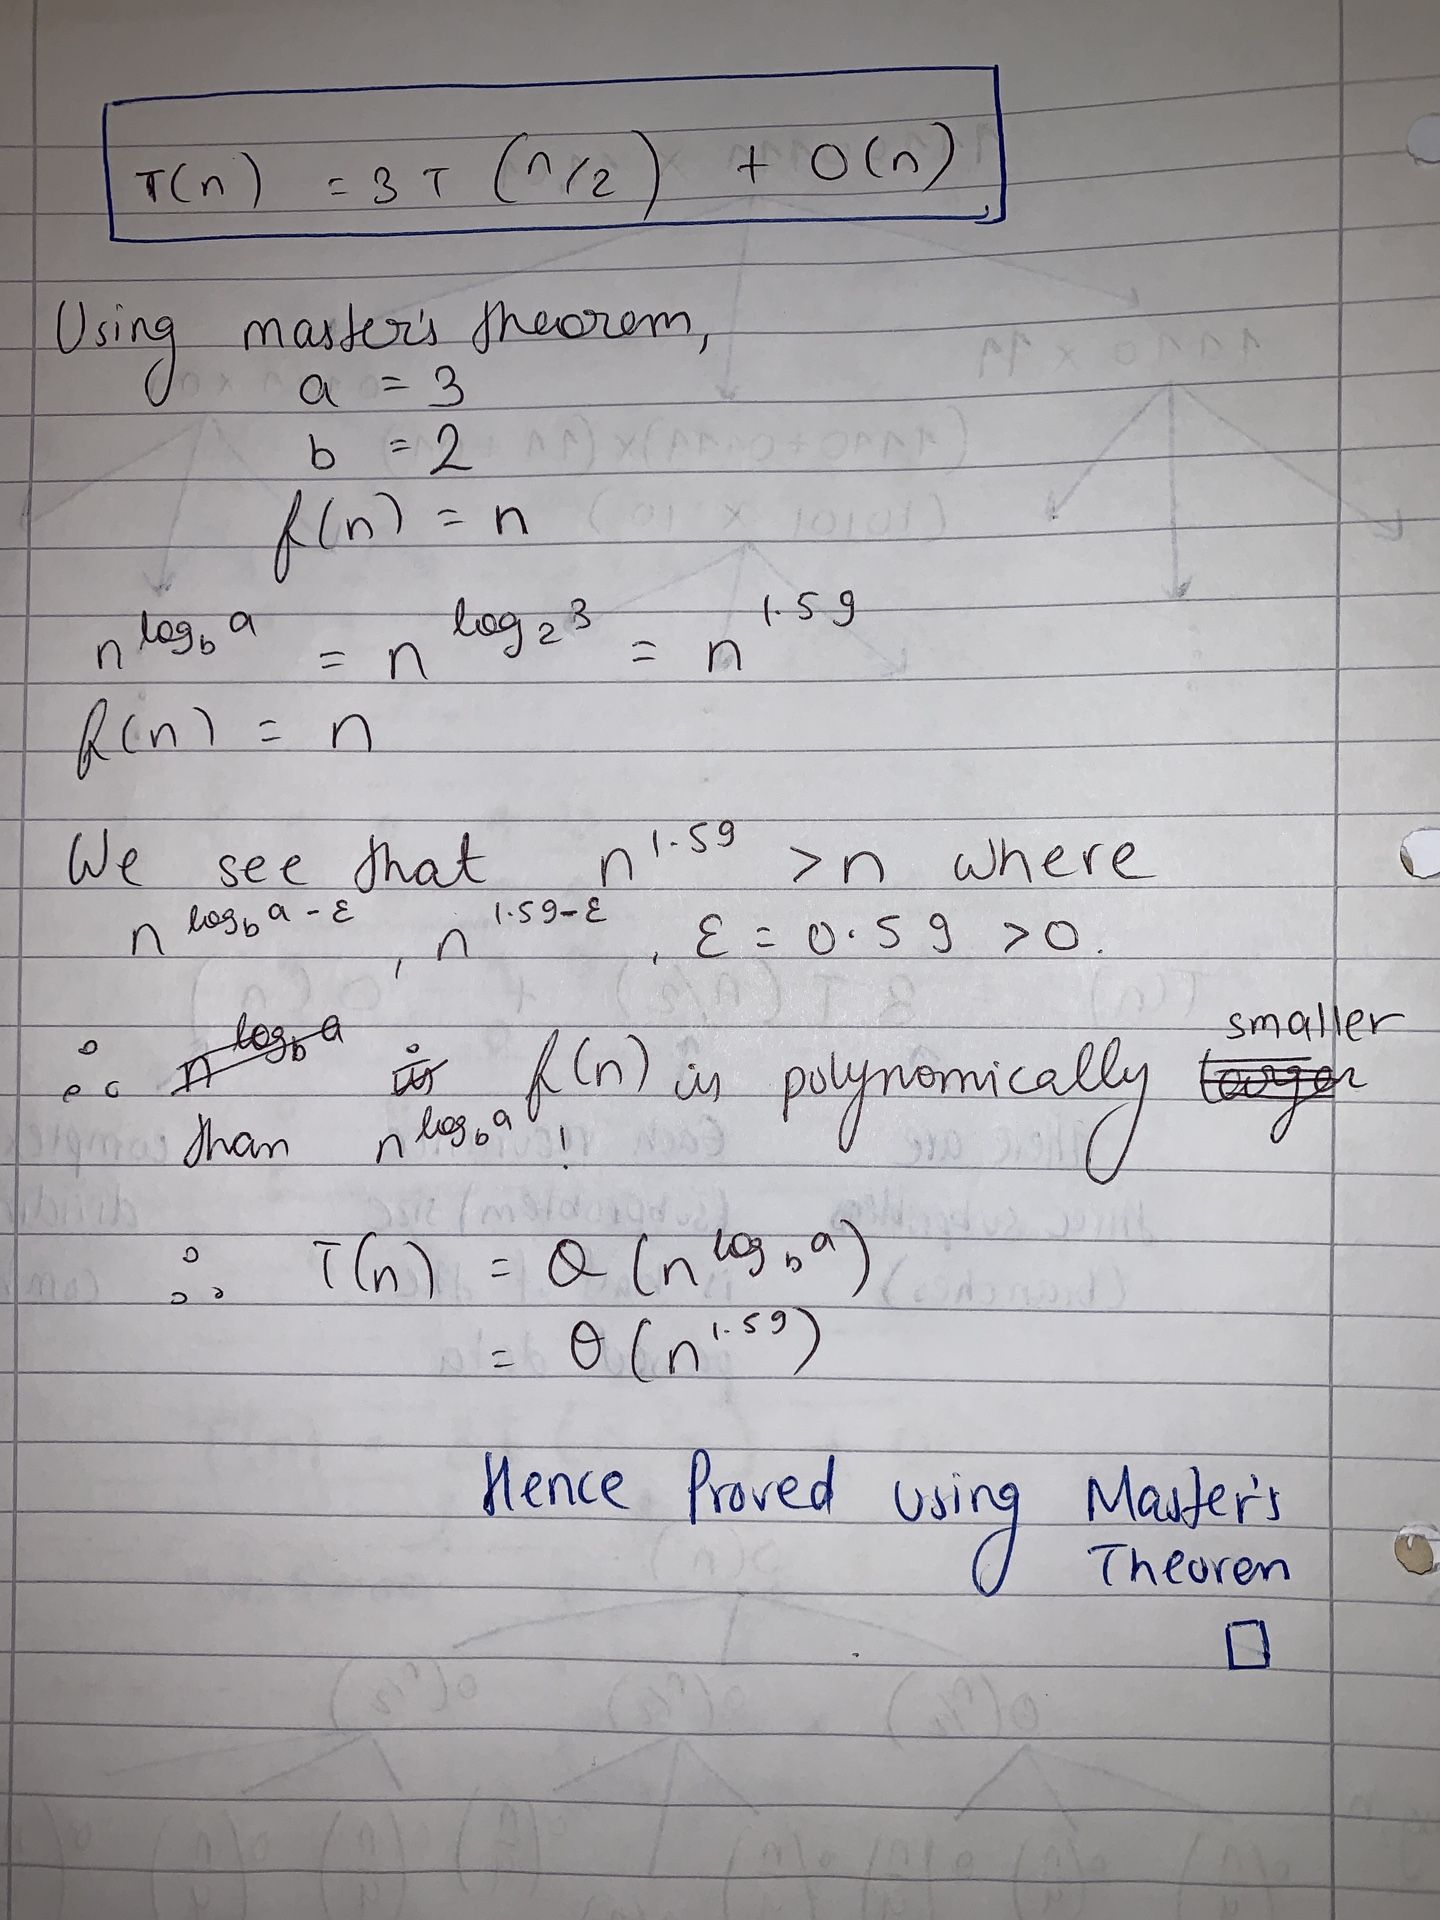 T(n) = 3T (n/2) + O(n)
Using master's theorem,
a = 3
b = 2
f(n) = n
n^log_b a = n^log_2 3 = n^1.59
f(n) = n
We see that n^1.59 > n where
n^log_b a-ε, n^1.59-ε, ε = 0.59 > 0.
∴ f(n) is polynomically smaller
than n^log_b a!
∴ T(n) = Θ(n^log_b a)
= Θ(n^1.59)
Hence Proved using Master's
Theorem